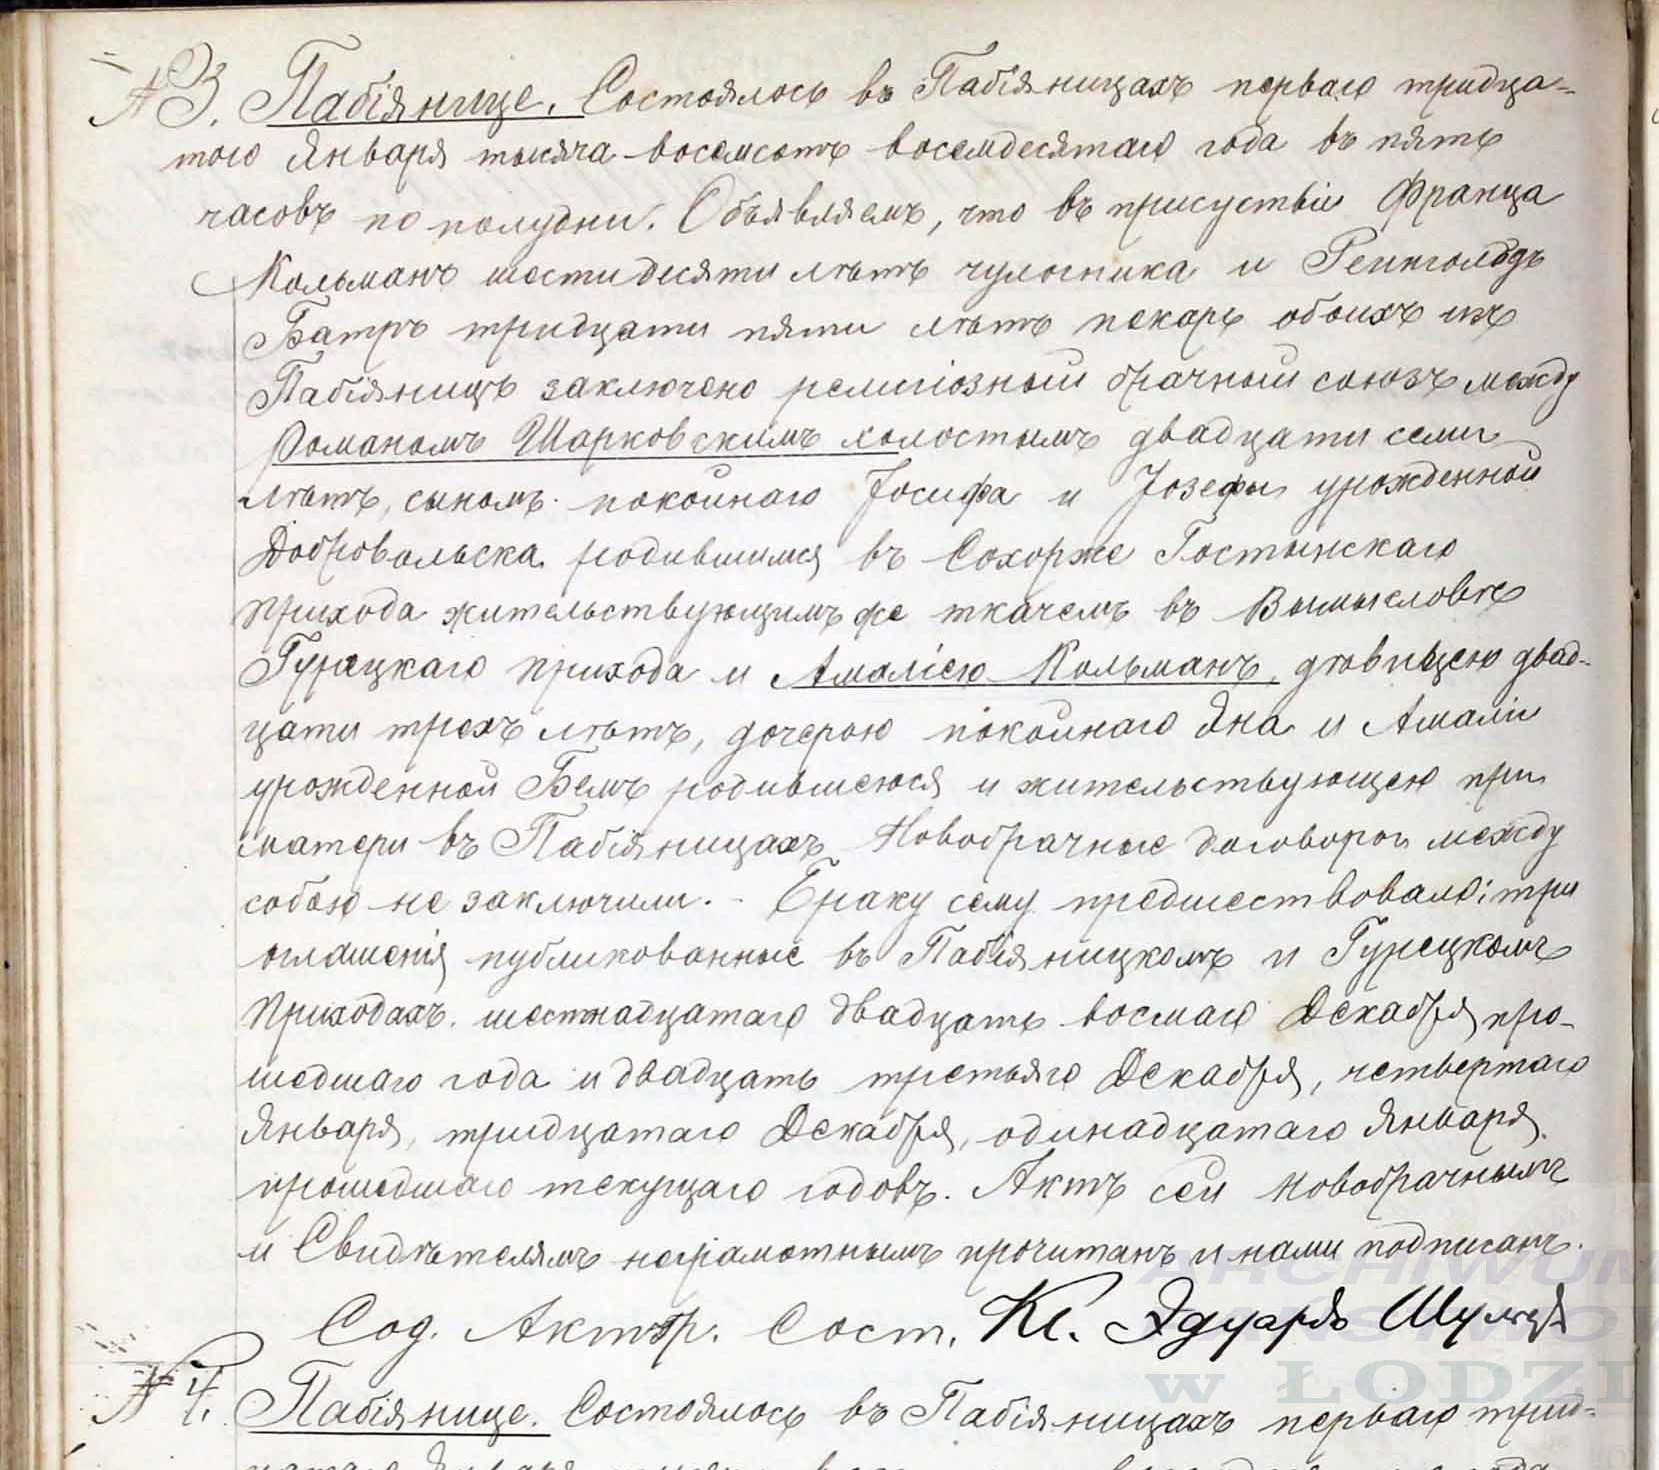 № 3. Пабіянице. Состоялось въ Пабіяницахъ перваго тридца-
таго Января тысяча восемсотъ восемдесятаго года въ пять
часовъ по полудни. Объявляемъ, что въ присуствіи Франца
Кольманъ шестидесяти лѣтъ чулочника и Реингольдъ
Батръ тридцати пяти лѣтъ пекаръ обоихъ изъ
Пабіяницъ заключено религіозный брачный союзъ между
Романомъ Шарковскимъ холостымъ двадцати семи
лѣтъ, сыномъ покойнаго Іосифа и Іозефы урожденной
Добровольска родившимся въ Сохорже Гостынскаго
прихода жительствующимъ же ткачемъ въ Вымысловѣ
Гурецкаго прихода и Амаліею Кольманъ, дѣвицею двад-
цати трехъ лѣтъ, дочерою покойнаго Яна и Амаліи
урожденной Бемъ родившеюся и жительствующею при
матери въ Пабіяницахъ Новобрачные договоры между
собою не заключили. - Браку сему предшествовало три
оглашенія публикованные въ Пабіяницкомъ и Гурецкомъ
приходахъ шестнадцатаго двадцать восмаго Декабря про-
шедшаго года и двадцать третьяго Декабря, четвертаго
Января, тридцатаго Декабря, одинадцатаго Января
прошедшаго текущаго годовъ. Актъ сеи новобрачнымъ
и Свидѣтелямъ неграмотнымъ прочитанъ и нами подписанъ.
Сод. Актъ гр. Сост. Кс. Эдуардъ Шульцъ
ARCHIWUM
w ŁODZI
№ 4. Пабіянице. Состоялось въ Пабіяницахъ перваго трид-